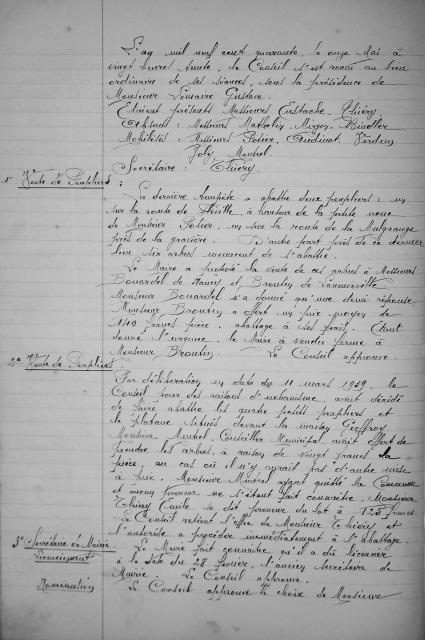 L'an mil neuf cent quarante, le onze Mai à
vingt heures trente, le Conseil s'est réuni au lieu
ordinaire de ses séances, sous la présidence de
Monsieur Lemaire Gustave.
Etaient présents Messieurs Eustache, Thiéry
Absents : Messieurs Mathelin,
Mobilisés : Messieurs
Secrétaire : Thiéry
1° Vente de Peupliers :
La dernière tempête a abattu deux peupliers : un
sur la route de à hauteur de la petite
de Monsieur un sur la route de la Malgrange
près de la gravière. D'autre part près de ce dernier
lieu six arbres menacent de s'abattre.
Le Maire a proposé la vente de ces arbres à Messieurs
Bouardel de Nancy et Broutin de
Monsieur Bouardel n'a donné qu'une demi réponse.
Monsieur Broutin a offert un prix moyen de
francs pièce, abattage à ses frais. Etant
donné l'urgence, le Maire a vendu ferme à
Monsieur Broutin. Le Conseil approuve.
2° Vente de Peupliers
Par délibération en date du 11 mars 1939, le
Conseil pour des raisons d'urbanisme, avait décidé
de faire abattre les quatre petits peupliers et
le platane situés devant la maison Geoffroy
Monsieur Conseiller Municipal, avait offert de
prendre les arbres, à raison de vingt francs la
pièce, au cas où il n'y aurait pas d'autre mise
à prix. Monsieur ayant quitté la Commune
et aucun preneur ne s'étant fait connaître, Monsieur
Thiéry Emile se dit preneur du lot à 125 francs
Le Conseil retient l'offre de Monsieur Thiéry et
l'autorise à procéder immédiatement à l'abattage.
3° Secrétaire de Mairie
Licenciement
Le Maire fait connaître qu'il a dû licencier
à la date du 28 février, l'ancien secrétaire de
Mairie. Le Conseil approuve.
Nomination
Le Conseil approuve le choix de Monsieur